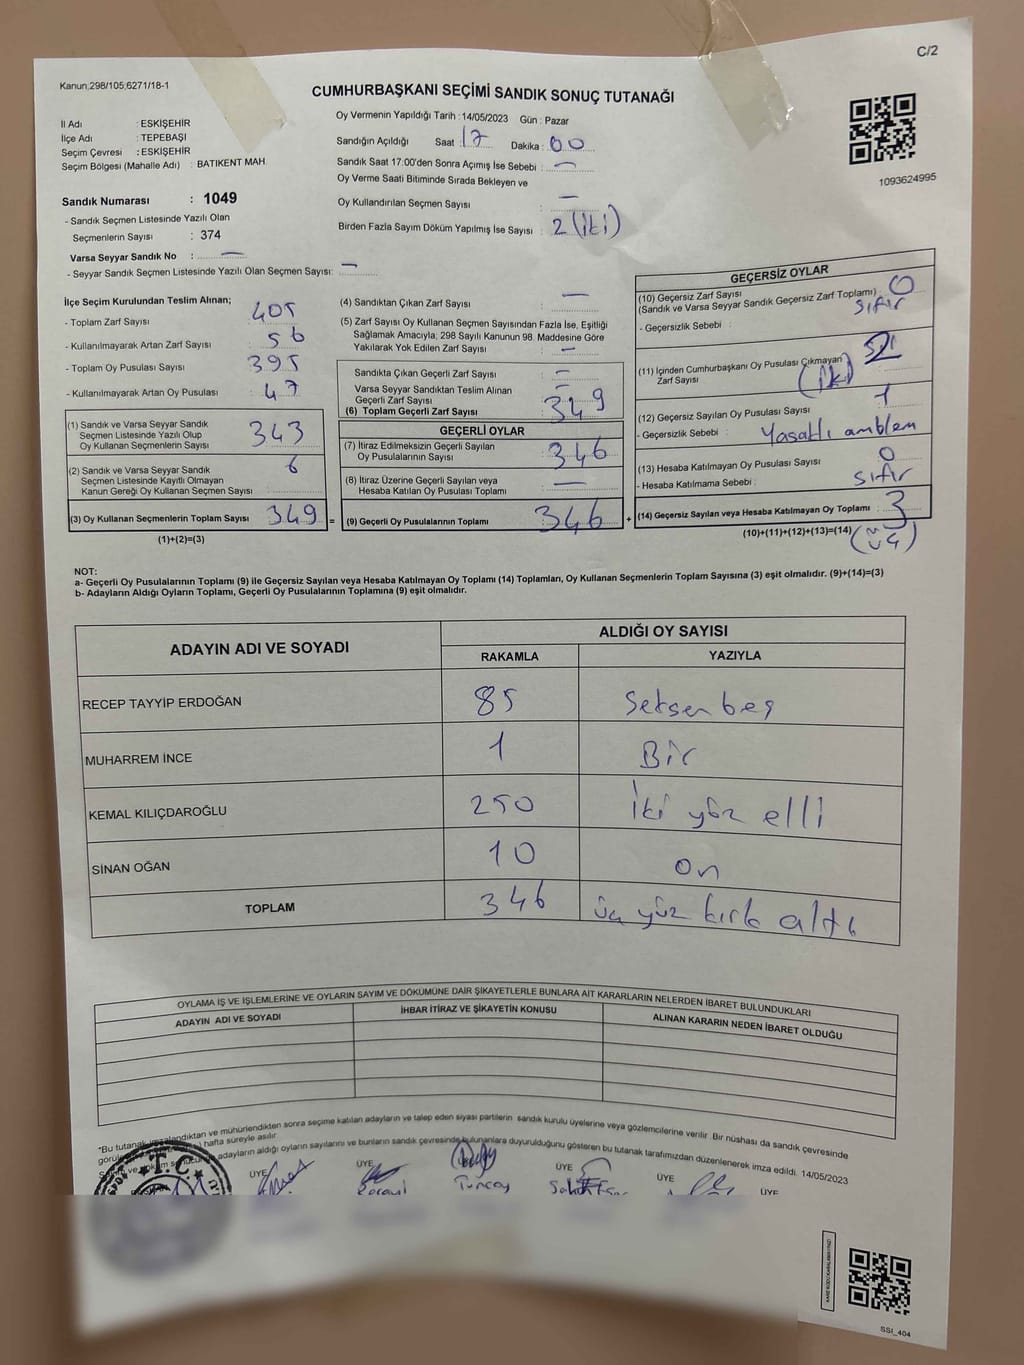 C/2
Kanun;298/105;6271/18-1
CUMHURBAŞKANI SEÇİMİ SANDIK SONUÇ TUTANAĞI
1093624995
İl Adı : ESKİŞEHİR
İlçe Adı : TEPEBAŞI
Seçim Çevresi : ESKİŞEHİR
Seçim Bölgesi (Mahalle Adı) : BATIKENT MAH.
Sandık Numarası : 1049
- Sandık Seçmen Listesinde Yazılı Olan
Seçmenlerin Sayısı : 374
Varsa Seyyar Sandık No : —
- Seyyar Sandık Seçmen Listesinde Yazılı Olan Seçmen Sayısı: —
Oy Vermenin Yapıldığı Tarih : 14/05/2023 Gün : Pazar
Sandığın Açıldığı Saat : 17 Dakika : 00
Sandık Saat 17:00'den Sonra Açımış İse Sebebi : —
Oy Verme Saati Bitiminde Sırada Bekleyen ve
Oy Kullandırılan Seçmen Sayısı : —
Birden Fazla Sayım Döküm Yapılmış İse Sayısı : 2 (iki)
İlçe Seçim Kurulundan Teslim Alınan;
- Toplam Zarf Sayısı 405
- Kullanılmayarak Artan Zarf Sayısı 56
- Toplam Oy Pusulası Sayısı 395
- Kullanılmayarak Artan Oy Pusulası 47
(1) Sandık ve Varsa Seyyar Sandık
Seçmen Listesinde Yazılı Olup
Oy Kullanan Seçmenlerin Sayısı 343
(2) Sandık ve Varsa Seyyar Sandık
Seçmen Listesinde Kayıtlı Olmayan
Kanun Gereği Oy Kullanan Seçmen Sayısı 6
(3) Oy Kullanan Seçmenlerin Toplam Sayısı 349 =
(1)+(2)=(3)
(4) Sandıktan Çıkan Zarf Sayısı : —
(5) Zarf Sayısı Oy Kullanan Seçmen Sayısından Fazla İse, Eşitliği
Sağlamak Amacıyla, 298 Sayılı Kanunun 98. Maddesine Göre
Yakılarak Yok Edilen Zarf Sayısı : —
Sandıkta Çıkan Geçerli Zarf Sayısı : —
Varsa Seyyar Sandıktan Teslim Alınan
Geçerli Zarf Sayısı : —
(6) Toplam Geçerli Zarf Sayısı : 349
GEÇERLİ OYLAR
(7) İtiraz Edilmeksizin Geçerli Sayılan
Oy Pusulalarının Sayısı : 346
(8) İtiraz Üzerine Geçerli Sayılan veya
Hesaba Katılan Oy Pusulası Toplamı : —
(9) Geçerli Oy Pusulalarının Toplamı 346 +
GEÇERSİZ OYLAR
(10) Geçersiz Zarf Sayısı : 0
(Sandık ve Varsa Seyyar Sandık Geçersiz Zarf Toplamı) sıfır
- Geçersizlik Sebebi :
(11) İçinden Cumhurbaşkanı Oy Pusulası Çıkmayan
Zarf Sayısı 2 (iki)
(12) Geçersiz Sayılan Oy Pusulası Sayısı : 1
- Geçersizlik Sebebi : Yasaklı amblem
(13) Hesaba Katılmayan Oy Pusulası Sayısı : 0
- Hesaba Katılmama Sebebi : sıfır
(14) Geçersiz Sayılan veya Hesaba Katılmayan Oy Toplamı : 3
(10)+(11)+(12)+(13)=(14) (üç)
NOT:
a- Geçerli Oy Pusulalarının Toplamı (9) ile Geçersiz Sayılan veya Hesaba Katılmayan Oy Toplamı (14) Toplamları, Oy Kullanan Seçmenlerin Toplam Sayısına (3) eşit olmalıdır. (9)+(14)=(3)
b- Adayların Aldığı Oyların Toplamı, Geçerli Oy Pusulalarının Toplamına (9) eşit olmalıdır.
ADAYIN ADI VE SOYADI ALDIĞI OY SAYISI
RAKAMLA YAZIYLA
RECEP TAYYİP ERDOĞAN 85 Seksen beş
MUHARREM İNCE 1 Bir
KEMAL KILIÇDAROĞLU 250 İki yüz elli
SİNAN OĞAN 10 on
TOPLAM 346 üç yüz kırk altı
OYLAMA İŞ VE İŞLEMLERİNE VE OYLARIN SAYIM VE DÖKÜMÜNE DAİR ŞİKAYETLERLE BUNLARA AİT KARARLARIN NELERDEN İBARET BULUNDUKLARI
ADAYIN ADI VE SOYADI İHBAR İTİRAZ VE ŞİKAYETİN KONUSU ALINAN KARARIN NEDEN İBARET OLDUĞU
"Bu tutanak imzalandıktan ve mühürlendikten sonra seçime katılan adayların ve talep eden siyasi partilerin sandık kurulu üyelerine veya gözlemcilerine verilir. Bir nüshası da sandık çevresinde
hafta süreyle asılır.
adayların aldığı oyların sayılarını ve bunların sandık çevresinde bulunanlara duyurulduğunu gösteren bu tutanak tarafımızdan düzenlenerek imza edildi. 14/05/2023
T.C.
ÜYE ÜYE Tuncay ÜYE ÜYE ÜYE
SSI_404